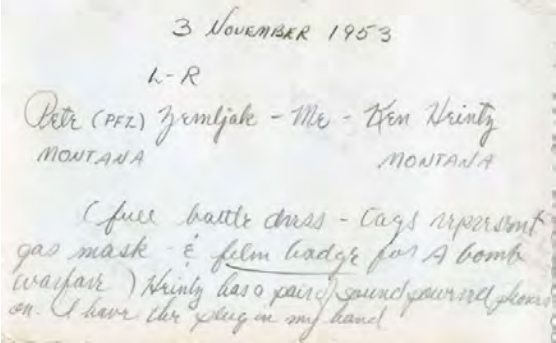 3 NOVEMBER 1953
L-R
Pete (PFZ) Zemljak - Me - Ken Heintz
MONTANA MONTANA
(full battle dress - Tags represent
gas mask - & film badge for A bomb
warfare) Heintz has a pair of sound powered phones
on. I have the plug in my hand